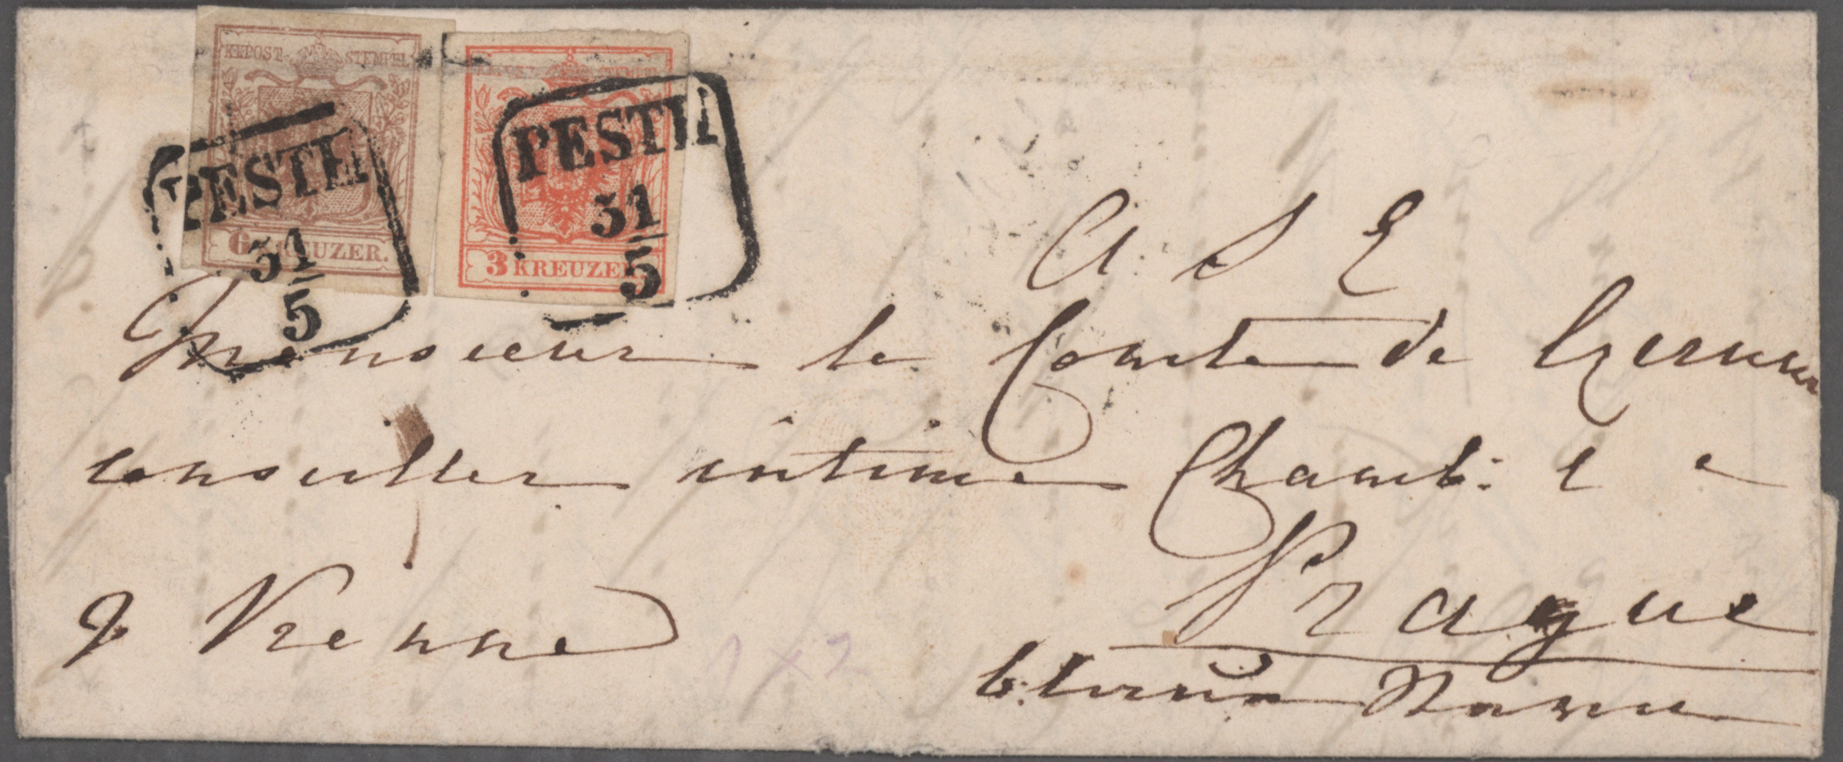 KK POST-STEMPEL
6 KREUZER.
PESTH
31
5
3 KREUZER
PESTH
31
5
A S E
Monsieur le Comte de Czernin
conseiller intime Chamb:
Prague
p Vienne
1 x 2